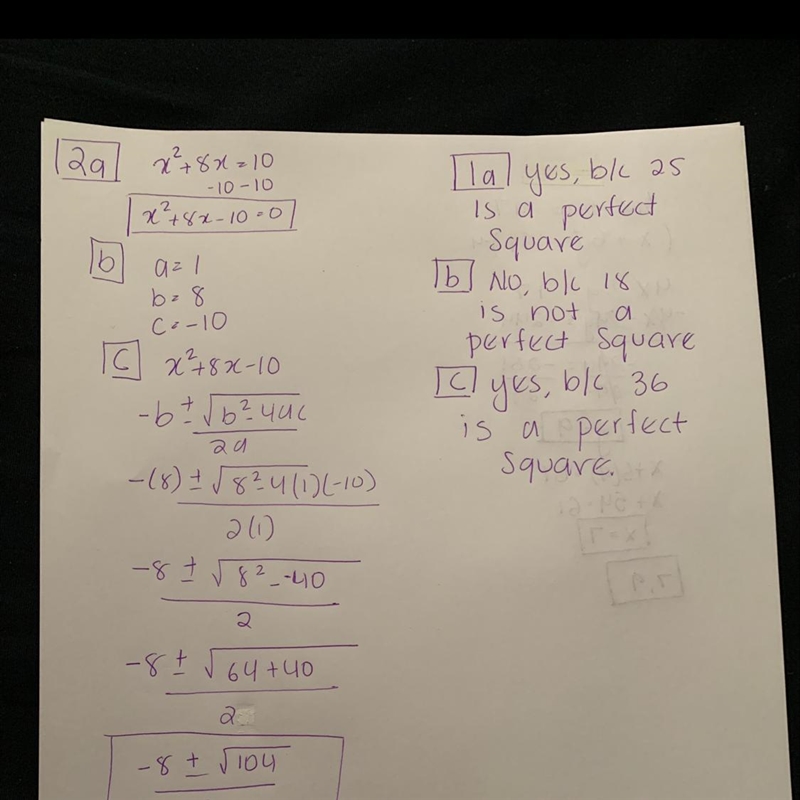 2a x²+8x=10
-10 -10
x²+8x-10=0
b a=1
b=8
c=-10
C x²+8x-10
-b ± √b²-4ac
2a
-(8) ± √8²-4(1)(-10)
2(1)
-8 ± √8²--40
2
-8 ± √64+40
2
-8 ± √104
1a yes, b/c 25
is a perfect
square
b No, b/c 18
is not a
perfect square
C yes, b/c 36
is a perfect
square.